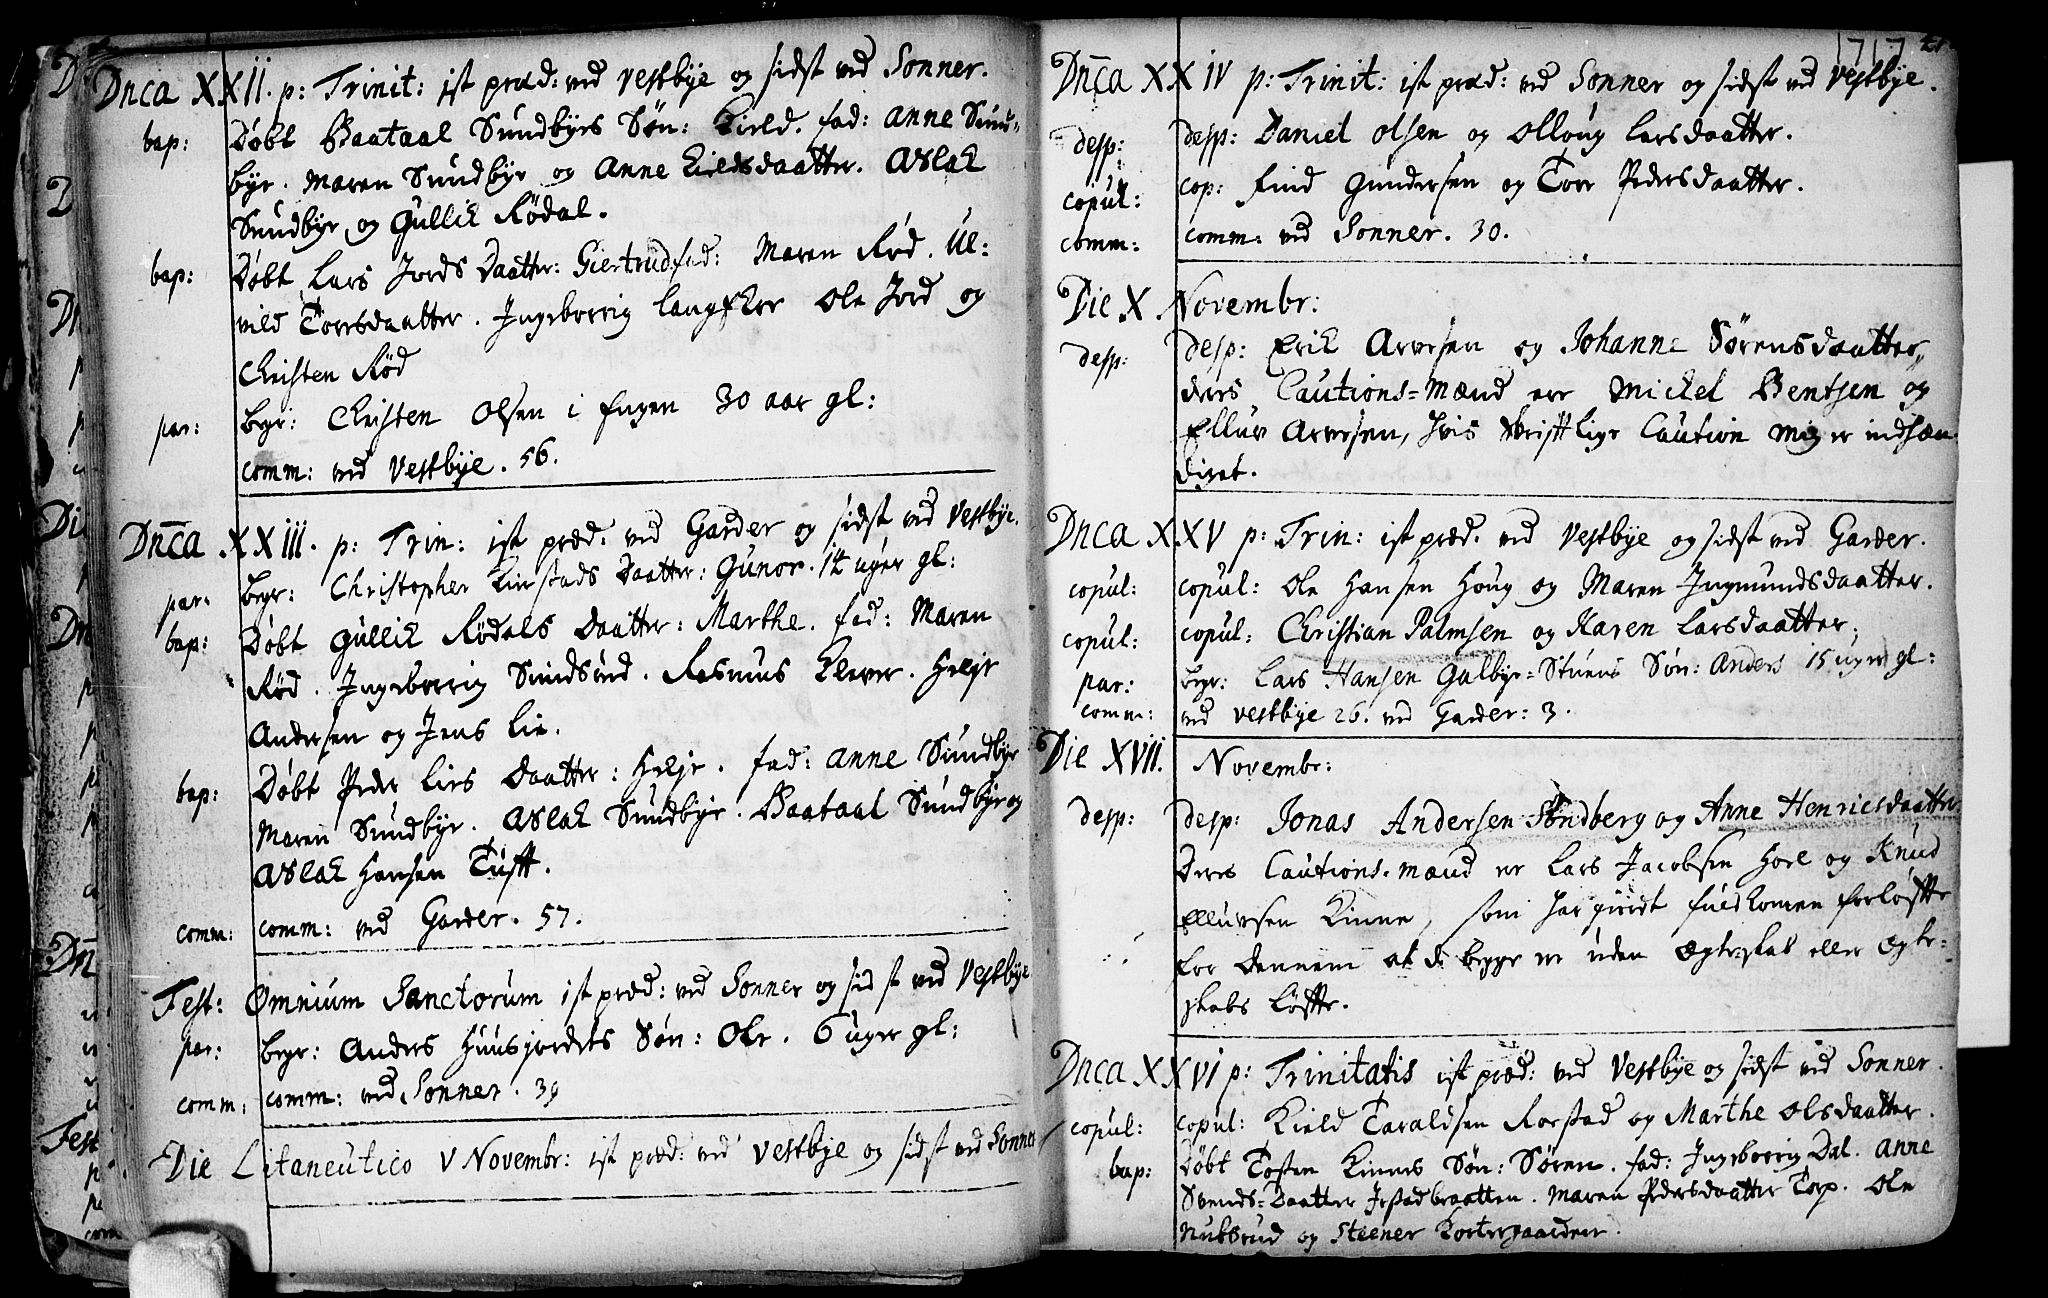 Dn̄ca XXII. p: Trinit: ist præd: ved Vestbye og sidst ved Sonner.
bap: Døbt Baataal Sundbyes Søn: Kield. fad: Anne Sund-
bye. Maren Sundbye og Anne Kieldsdaatter. Aslak
Sundbye og Gullik Rødal.
bap: Døbt Lars Jords Daatter: Giertrud fad: Maren Rød. Ul:
vild Torersdaatter. Ingeborrig Ole Jord og
Christen Rød
par: begr: Christen Olsen i Engen 30 aar gl:
comm: ved Vestbye. 56.
Dn̄ca XXIII. p: Trin: ist præd: ved Garder og sidst ved Vestbye.
par: begr: Christopher Lie stads Daatter: Gunor. 14 uger gl:
bap: Døbt Gullik Rødals Daatter: Marthe. fad: Maren
Rød. Ingeborrig Sundsud. Rasmus Klever. Helje
Andersen og Jens Lie.
bap: Døbt Peder Lies Daatter: Helje. fad: Anne Sundbye
Maren Sundbye. Aslak Sundbye. Baataal Sundbye og
Aslak Hansen Tuft.
comm: comm: ved Garder. 57.
Fest: Omnium Sanctorum ist præd: ved Sonner og sidst ved Vestbye
par: begr: Anders Huusjordets Søn: Ole. 6 uger gl:
comm: comm: ved Sonner. 39
Die Litaneutico V Novembr: ist præd: ved Vestbye og sidst ved Sonner
1717
Dn̄ca XXIV p: Trinit: ist præd: ved Sonner og sidst ved Vestbye.
desp: desp: Daniel Olsen og Olloug Larsdaatter.
copul: cop: Find Gundersen og Tore Pedersdaatter.
comm: comm: ved Sonner. 30.
Die X Novembr:
desp: desp: Erik Arvesen og Johanne Sørensdaatter,
deres Cautions-Mænd ere Mickel Bentsen og
Elluv Arvesen, hvis skriftlige Caution mig er indhæn-
diget.
Dnca XXV p: Trin: ist præd: ved Vestbye og sidst ved Garder.
copul: copul: Ole Hansen Houg og Maren Ingmundsdaatter.
copul: copul: Christian Palmsen og Karen Larsdaatter.
par: begr: Lars Hansen Galbye-Stuens Søn: Anders 15 uger gl:
comm: ved Vestbye 26. ved Garder: 3.
Die XVII. Novembr:
desp: desp: Jonas Andersen Sondberg og Anne Henricsdaatter.
Deres Cautions-mænd er Lars Jacobsen Hoel og Knud
Elluvsen Kinne, som har giordt fuldkomen forløfte
for dennem at de begge er uden Ægteskab eller Ægte-
skabs Løfte.
Dnca XXVI p: Trinitatis ist præd: ved Vestbye og sidst ved Sonner.
copul: copul: Kield Taraldsen Rorstad og Marthe Olsdaatter.
bap: Døbt Tosten Kinnes Søn: Søren. fad: Ingeborrig Dal. Anne
Svends-Daatter Maren Pedersdaatter Torp. Ole
Nubbrud og Steener